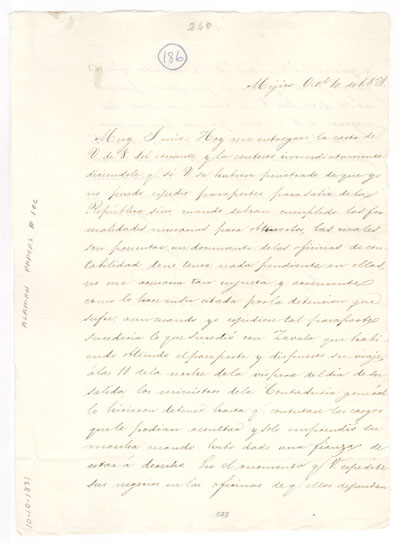 240
186
Mejico Oct.e 10 de 1831.
Muy S. mio: Hoy me entregan la carta de
V. de 8. del corriente, y la contesto inmediatamente
diciendole q. si V. se hubiera penetrado de que yo
no puedo expedir pasaportes para salir de la
Republica sino cuando se han cumplido las for-
malidades necesarias para obtenerlos, las cuales
son presentar un documento de las oficinas de con-
tabilidad, de no tener nada pendiente en ellas,
no me acusaria tan injusta y
como lo hace en su citada por la detencion que
sufre: aun cuando yo expidiese tal pasaporte
sucederia lo que sucedió con Zavala que habi-
endo obtenido el pasaporte y dispuesto su viaje,
á las 11 de la noche de la vispera del dia de su
salida los ministros de la Contaduria general
lo hicieron detener hasta q. contestase los cargos
que le podian resultar y solo emprendió su
marcha cuando hubo dado una fianza de
estar á derecho. En el momento q. V. expedite
sus negocios en las oficinas de q. ellos dependan
ALAMAN PAPERS # 186
10-10-1831